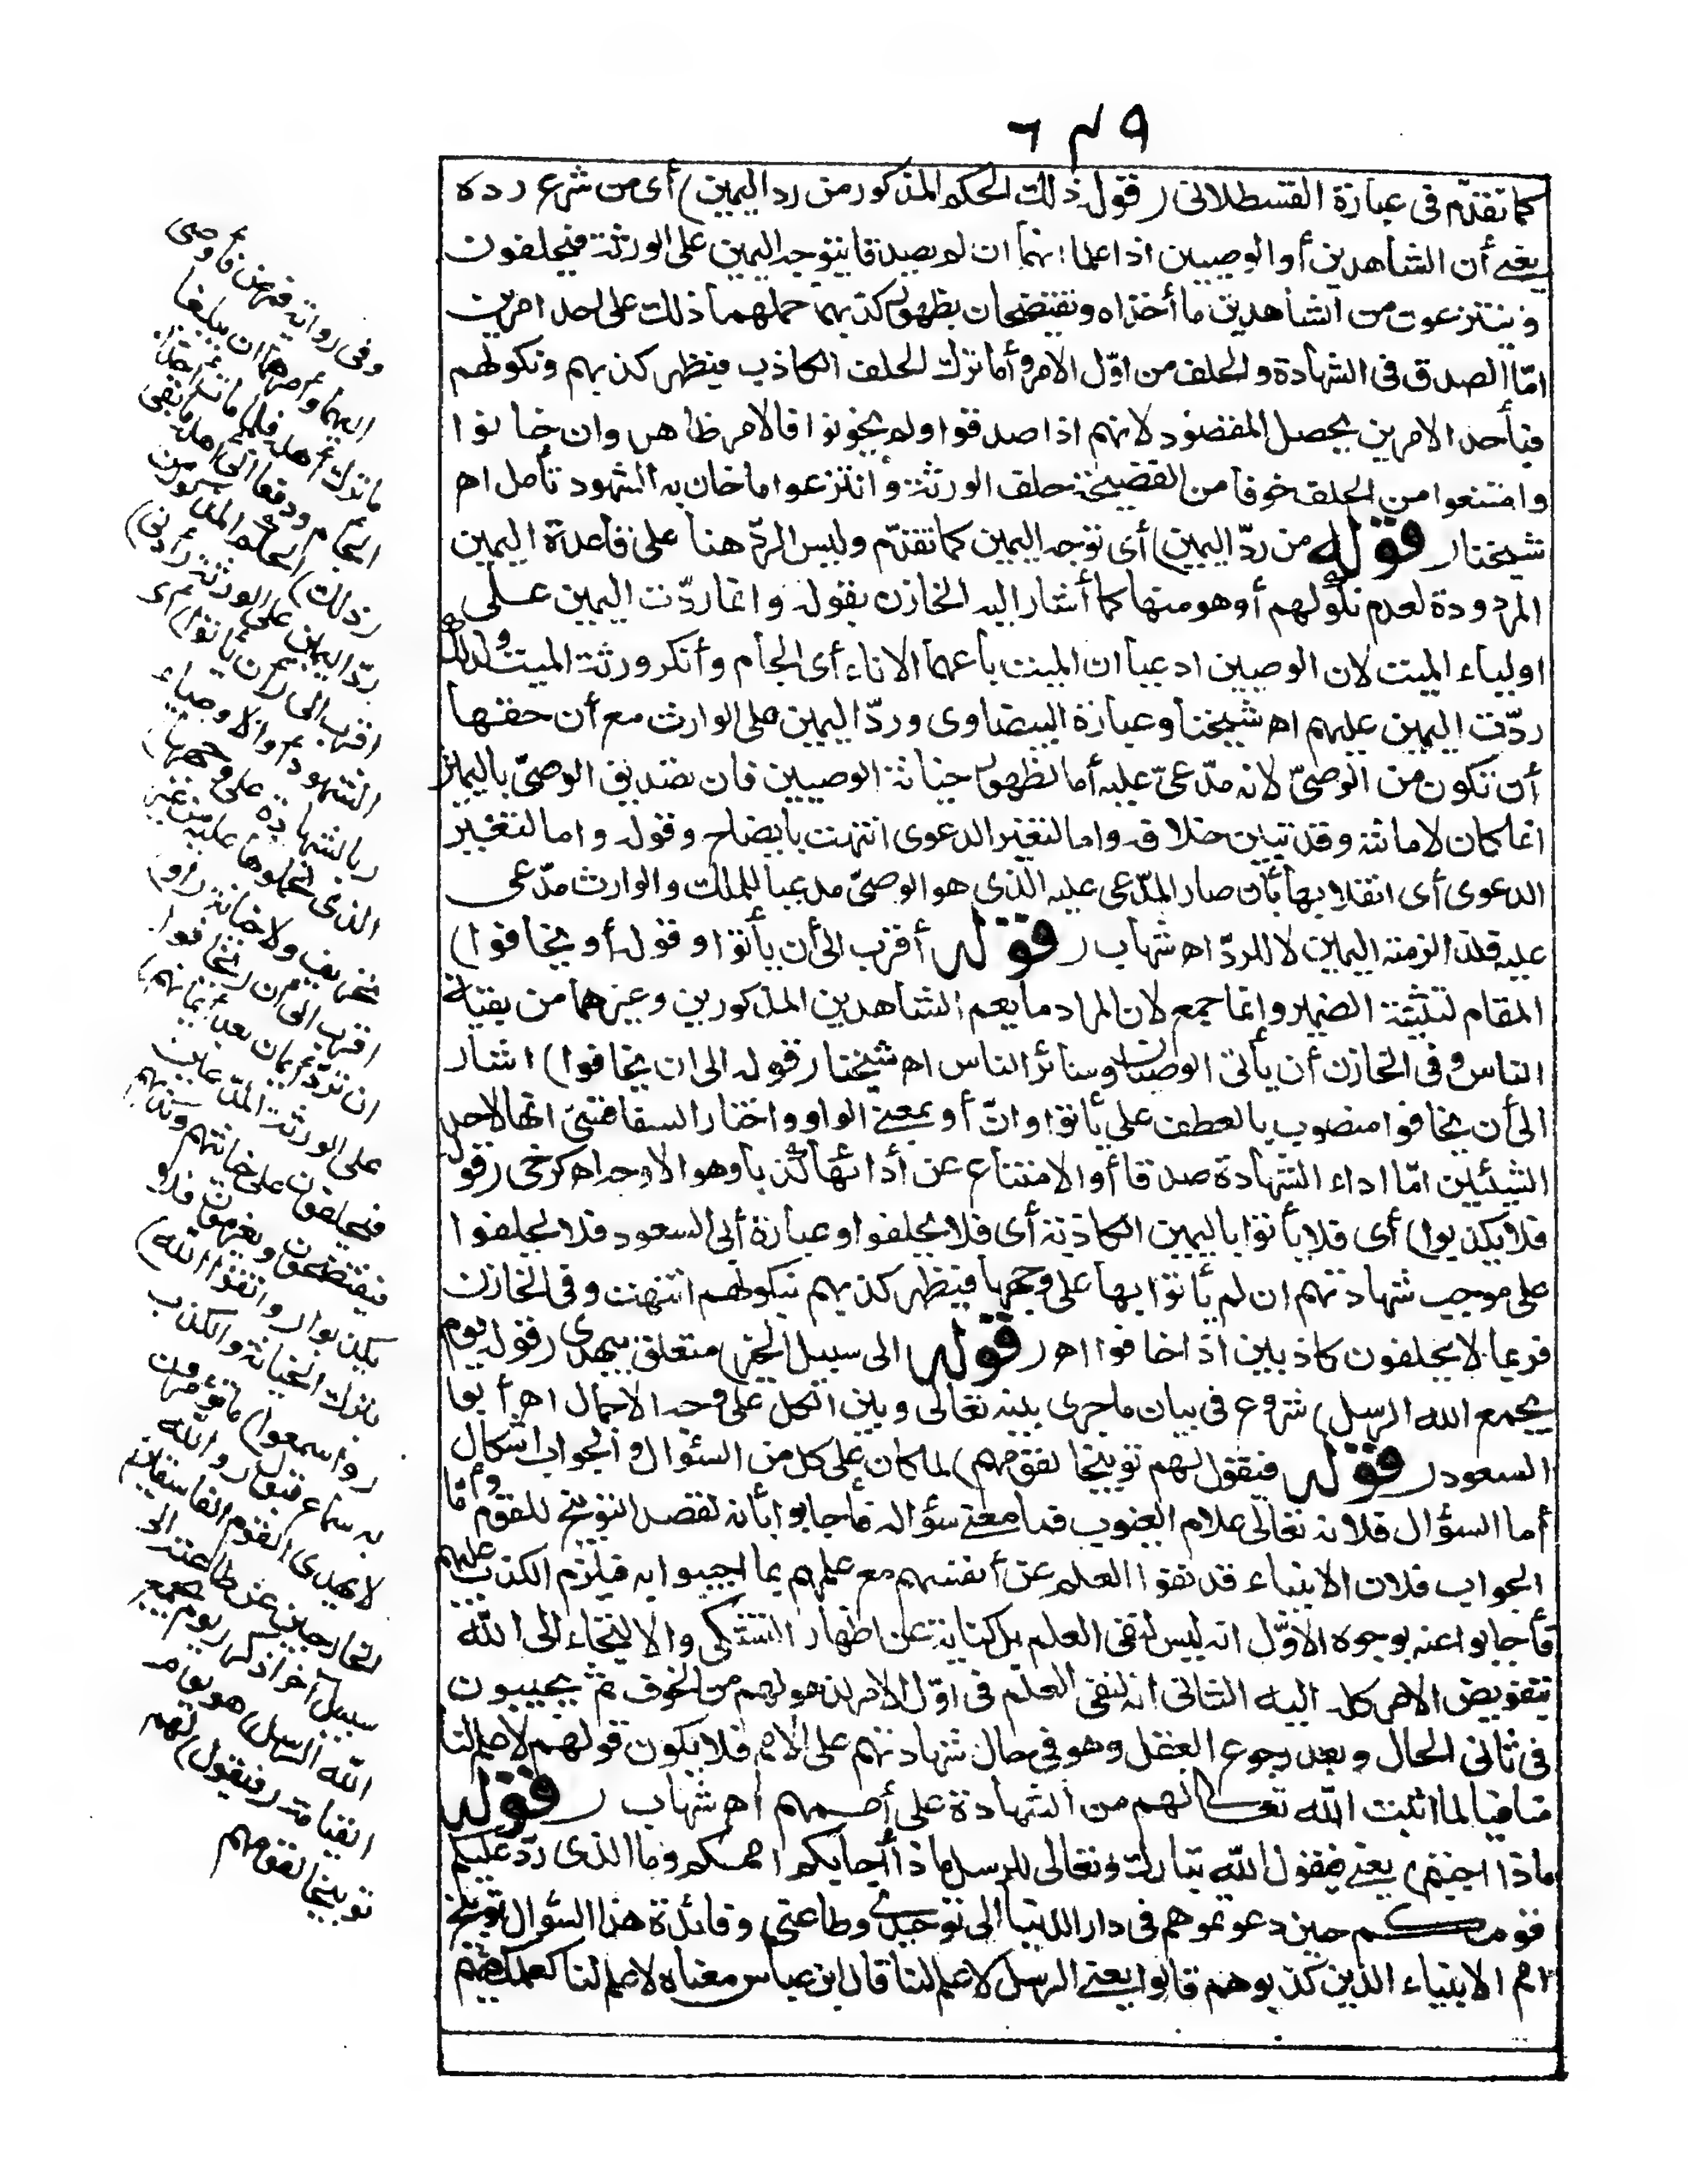 ٦٣٩
كما تقدّم فى عبارة القسطلانى (قوله ذلك الحكم المذكور من رد اليمين) أى من شرع رده
يعنى أن الشاهدين أو الوصيين اذا علما انهما ان لم يصدقا يتوجه اليمين على الورثة فيحلفون
وينتزعون من الشاهدين ما أخذاه ويفتضحان بظهور كذبهما حملهما ذلك على احد امرين
امّا الصدق فى الشهادة والحلف من اوّل الامر وأما ترك الحلف الكاذب فيظهر كذبهم ونكولهم
فبأحد الامرين يحصل المقصود لانهم اذا صدقوا ولم يخونوا فالامر ظاهر وان خانوا
وامتنعوا من الحلف خوفا من الفضيحة حلف الورثة وانتزعوا ما خان به الشهود تأمل اه
شيخنا (قوله من ردّ اليمين) أى توجه اليمين كما تقدّم وليس الردّ هنا على قاعدة اليمين
المردودة لعدم نكولهم أو هو منها كما أشار اليه الخازن بقوله وانما ردّت اليمين على
اولياء الميت لان الوصيين ادعيا ان الميت باعهما الاناء أى الجام وأنكر ورثة الميت ولذلك
ردّت اليمين عليهم اه شيخنا وعبارة البيضاوى وردّ اليمين على الوارث مع أن حقها
أن تكون من الوصىّ لانه مدّعىّ عليه أما لظهور خيانة الوصيين فان تصديق الوصىّ باليمين
انما كان لامانته وقد تبين خلافه واما لتغير الدعوى انتهت بايضاح وقوله واما لتغيير
الدعوى أى انقلابها بأن صار المدّعى عليه الذى هو الوصىّ مدعيا للملك والوارث مدّعى
عليه فلذا لزمته اليمين لا للردّ اه شهاب (قوله أقرب الى أن يأتوا وقوله أو يخافوا)
المقام لتثنية الضمير وانما جمع لان المراد ما يعم الشاهدين المذكورين وغيرهما من بقية
الناس وفى الخازن أن يأتى الوصيان وسائر الناس اه شيخنا (قوله الى ان يخافوا) اشار
الى أن يخافوا منصوب بالعطف على يأتوا وانّ أو بمعنى الواو واختار السفاقسىّ انها لاحد
الشيئين امّا اداء الشهادة صدقا أو الامتناع عن أدائها كذبا وهو الاوجه اه كرخى (قوله
فلا يكذبوا) أى فلا يأتوا باليمين الكاذبة أى فلا يحلفوا وعبارة أبى السعود فلا يحلفوا
على موجب شهادتهم ان لم يأتوا بها على وجهها فيظهر كذبهم بنكولهم انتهت وفى الخازن
فربما لا يحلفون كاذبين اذا خافوا اه (قوله الى سبيل الخير) متعلق بيهدى (قوله يوم
يجمع الله الرسل) شروع فى بيان ما جرى بينه تعالى وبين الكل على وجه الاجمال اه أبوا
السعود (قوله فيقول لهم توبيخا لقومهم) لما كان على كل من السؤال والجواب اشكال
أما السؤال فلانه تعالى علام الغيوب فما معنى سؤاله فأجابوا بأنه لقصد التوبيخ للقوم وأما
الجواب فلان الانبياء قد نفوا العلم عن أنفسهم مع علمهم بما اجيبوا به فيلزم الكذب عليهم
فأجابوا عنه بوجوه الاوّل انه ليس لنفى العلم بل كناية عن اظهار التشكى والالتجاء الى الله
بتفويض الامر كله اليه الثانى انه لنفى العلم فى اوّل الامر لذهولهم من الخوف ثم يجيبون
فى ثانى الحال وبعد رجوع العقل وهو فى حال شهادتهم على الامم فلا يكون قولهم لا علم لنا
منافيا لما اثبت الله تعالى لهم من الشهادة على أممهم اه شهاب (قوله
ماذا اجبتم) يعنى فيقول الله تبارك وتعالى للرسل ماذا أجابكم اممكم وما الذى ردّ عليكم
قومكم حين دعوتموهم فى دار الدنيا الى توحيدى وطاعتى وفائدة هذا السؤال توبيخ
امم الانبياء الذين كذبوهم قالوا يعنى الرسل لا علم لنا قال ابن عباس معناه لا علم لنا كعلمك فيهم
وفى رواية فمرض فأوصى
اليهما وأمرهما ان يبلغا
ما ترك أهله فلما مات أخذا
الجام ودفعا الى اهله ما بقى
(ذلك) الحكم المذكور من
ردّ اليمين على الورثة (أدنى)
اقرب الى (أن يأتوا) أى
الشهود أو الاوصياء
(بالشهادة على وجهها)
الذى تحملوها عليه من غير
تحريف ولا خيانة (أو)
اقرب الى ان (يخافوا
ان تردّ أيمان بعد أيمانهم)
على الورثة المدّعين
فيحلفون على خيانتهم وكذبهم
فيفتضحون ويغرمون فلا
يكذبوا (واتقوا الله)
بترك الخيانة والكذب
(واسمعوا) ما تؤمرون
به سماع قبول (والله
لا يهدى القوم الفاسقين)
الخارجين عن طاعته الى
سبيل الخير اذكر (يوم يجمع
الله الرسل) هو يوم
القيامة (فيقول) لهم
توبيخا لقومهم